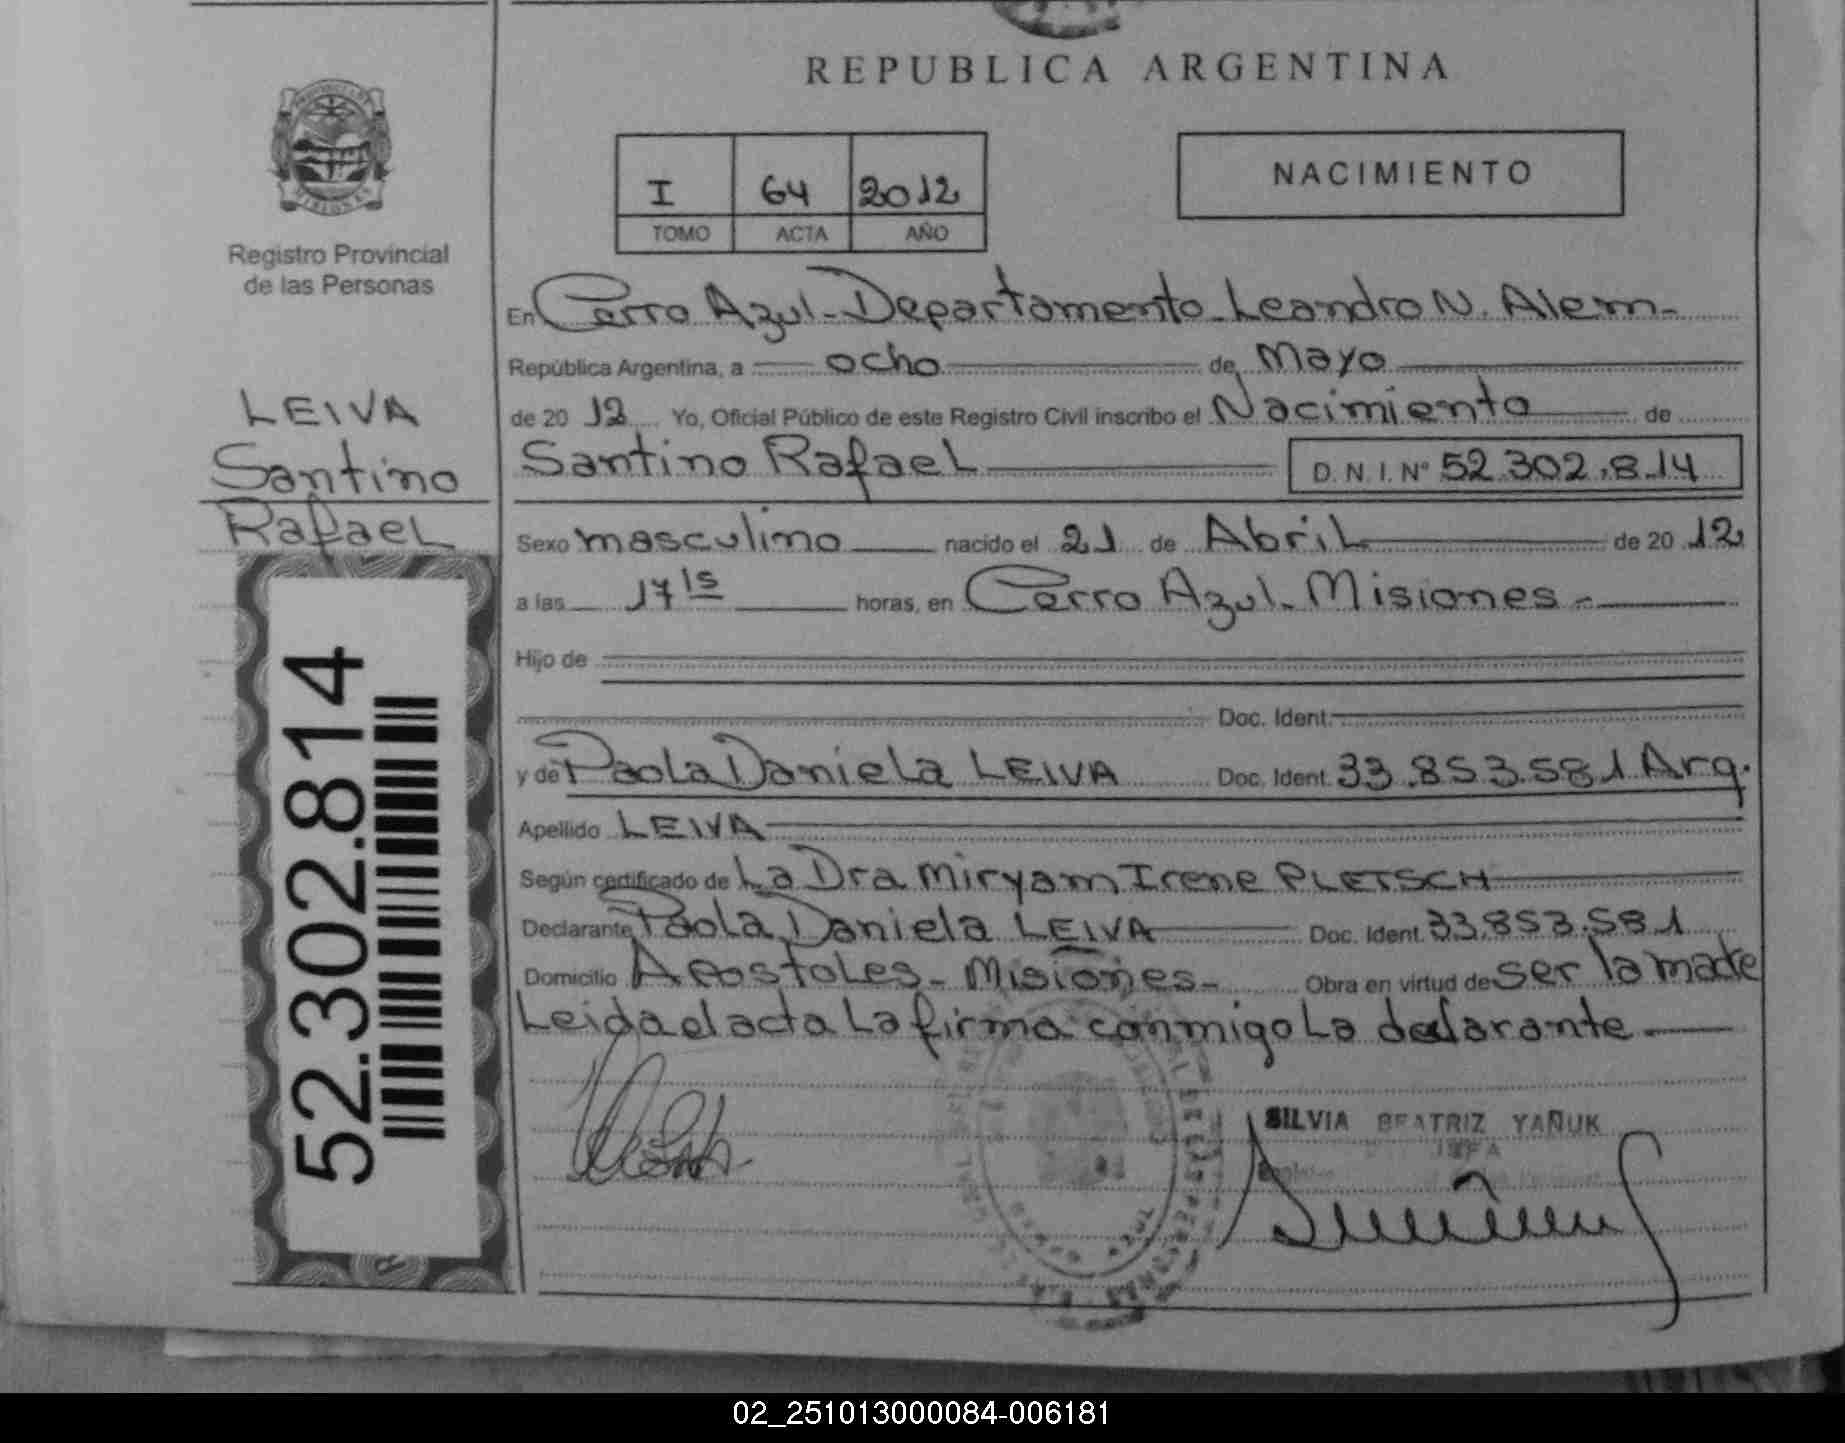 REPUBLICA ARGENTINA
I 64 2012
TOMO ACTA AÑO
NACIMIENTO
Registro Provincial
de las Personas
LEIVA
Santino
Rafael
52.302.814
En Cerro Azul - Departamento Leandro N. Alem -
República Argentina, a ocho de Mayo
de 20 12 Yo, Oficial Público de este Registro Civil inscribo el Nacimiento de
Santino Rafael D.N.I. Nº 52.302.814
Sexo masculino nacido el 21 de Abril de 20 12
a las 17 15 horas, en Cerro Azul - Misiones -
Hijo de
Doc. Ident.
y de Paola Daniela LEIVA Doc. Ident. 33.853.581 Arg.
Apellido LEIVA
Según certificado de La Dra Miryam Irene PLETSCH
Declarante Paola Daniela LEIVA Doc. Ident. 33.853.581
Domicilio Apostoles - Misiones - Obra en virtud de ser la madre
Leida el acta La firma conmigo La declarante
SILVIA BEATRIZ YAÑUK
JEFA
02_251013000084-006181